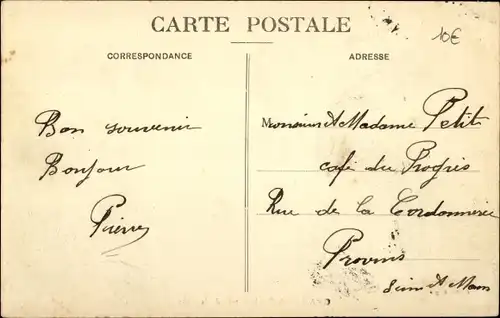 CARTE POSTALE
10€
CORRESPONDANCE
ADRESSE
Bon souvenir
Bonjour
Pierre
Monsieur & Madame Petit
café du Progrès
Rue de la Cordonnerie
Provins
Seine & Marne